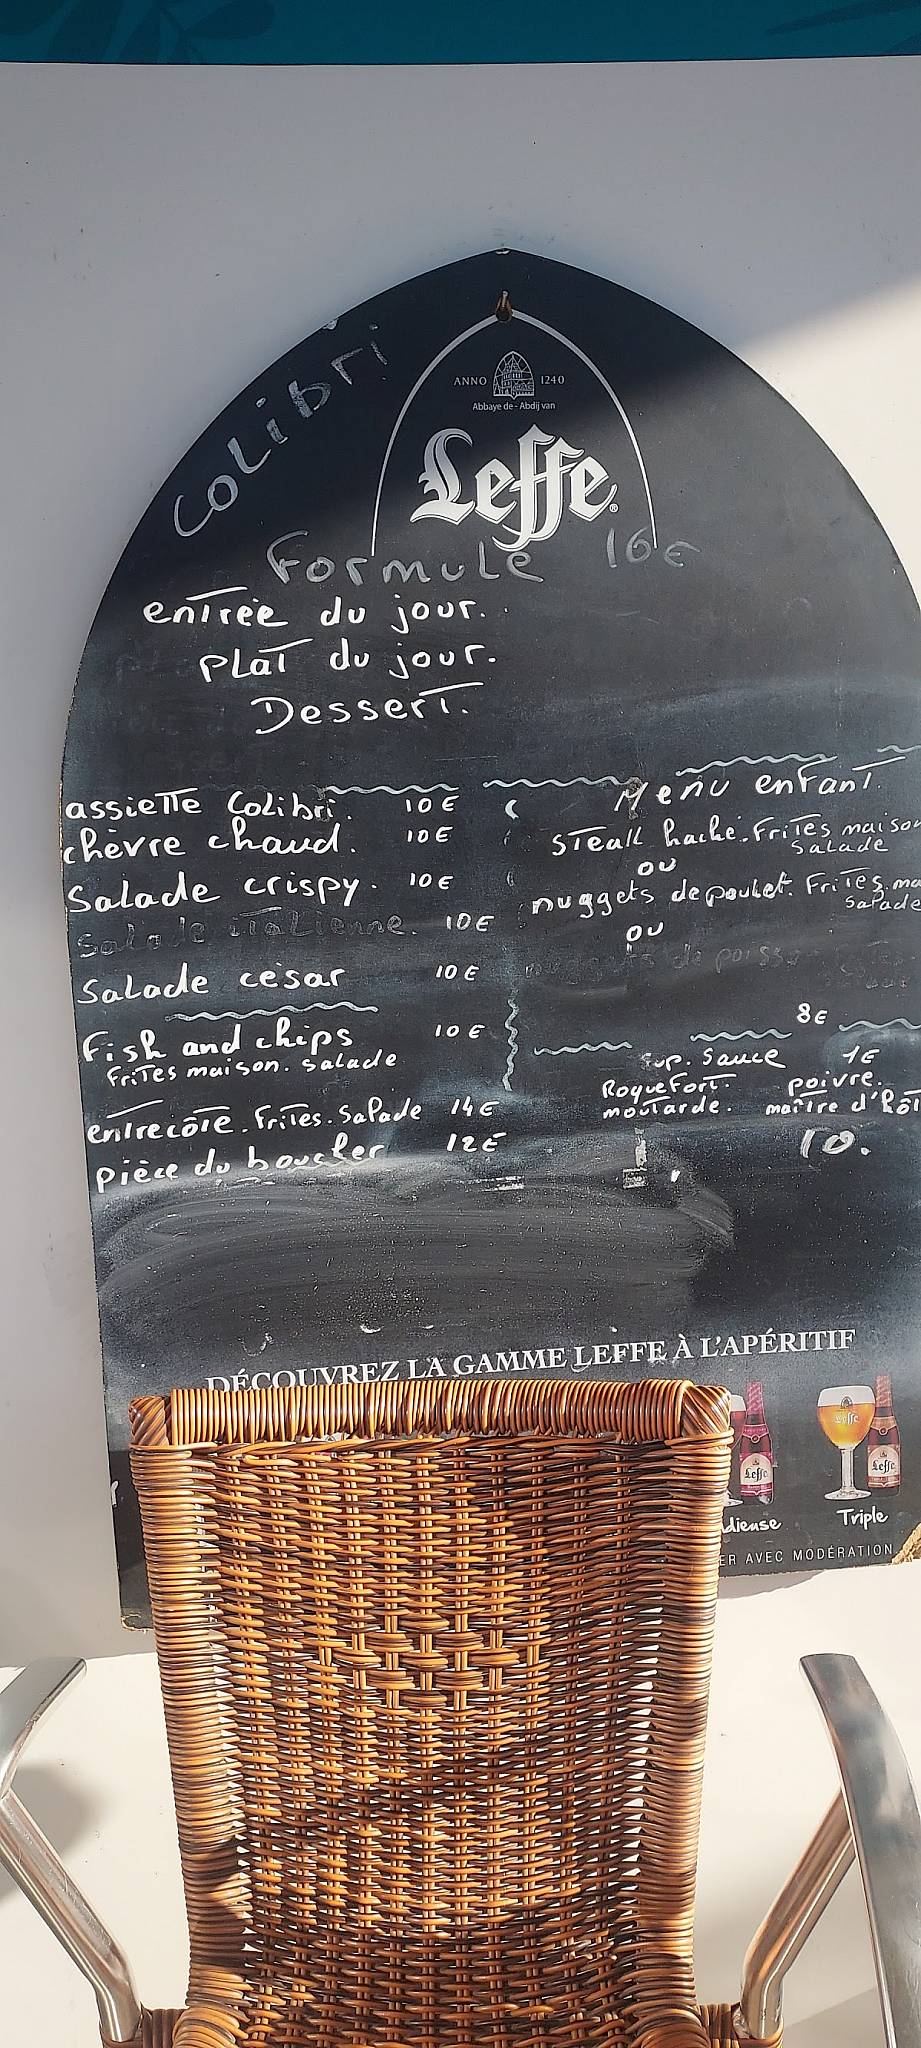 Colibri
ANNO 1240
Abbaye de - Abdij van
Leffe
Formule 16€
entrée du jour.
plat du jour.
Dessert.
assiette Colibri. 10€
chèvre chaud. 10€
Salade crispy. 10€
Salade italienne. 10€
Salade césar 10€
Fish and chips 10€
Frites maison. salade
entrecôte. Frites. Salade 14€
pièce du boucher 12€
Menu enfant.
Steak haché. Frites maison
Salade
ou
nuggets de poulet. Frites.
Salade
ou
nuggets de
8€
Sup. Sauce 1€
Roquefort. poivre.
moutarde. maître d'hôt
10.
DÉCOUVREZ LA GAMME LEFFE À L'APÉRITIF
Leffe
Leffe
Leffe
Triple
AVEC MODÉRATION